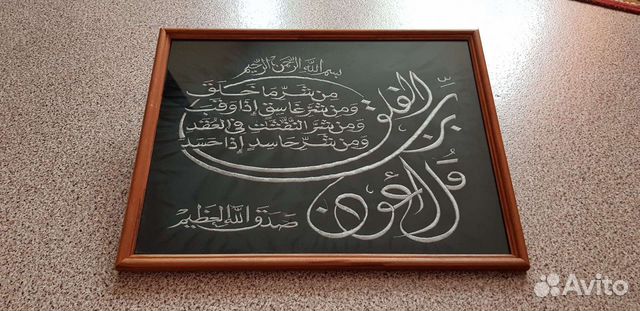 بسم الله الرحمن الرحيم
قل أعوذ
برب الفلق
من شر ما خلق
ومن شر غاسق إذا وقب
ومن شر النفثت في العقد
ومن شر حاسد إذا حسد
صدق الله العظيم
Avito